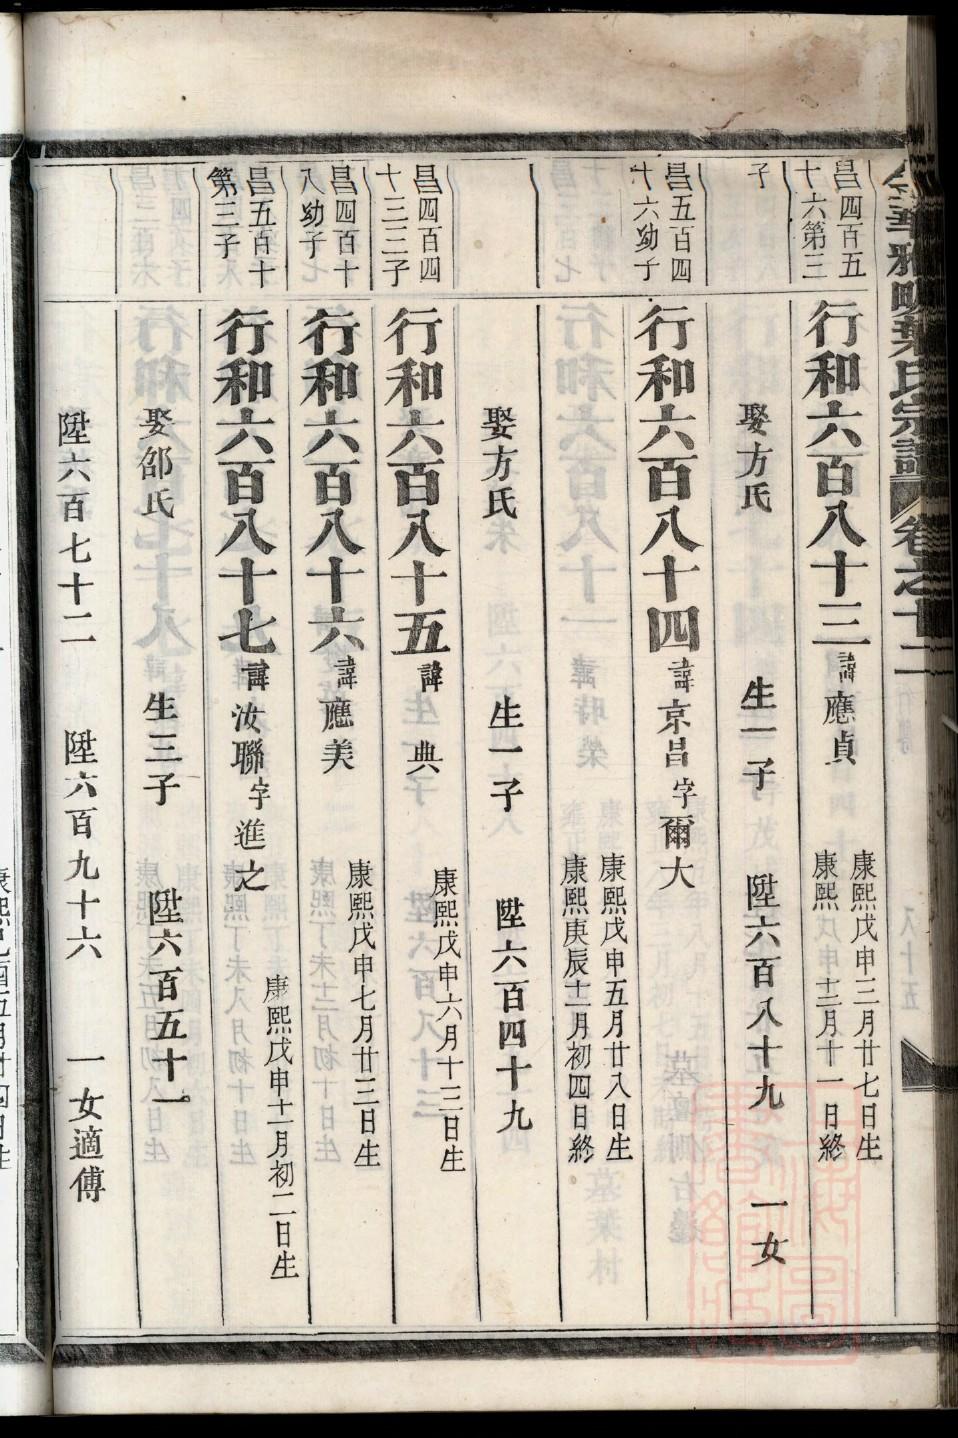 金華雅畈葉氏宗譜 卷之十二
昌四百五
十六第三
子
行和六百八十三 諱應貞
康熙戊申三月廿七日生
康熙戊申十二月十一日終
娶方氏 生一子 陞六百八十九 一女
昌五百四
十六幼子
行和六百八十四 諱京昌 字爾大
康熙戊申五月廿八日生
康熙庚辰十二月初四日終
娶方氏 生一子 陞六百四十九
昌四百四
十三三子
行和六百八十五 諱 典
康熙戊申六月十三日生
昌四百十
八幼子
行和六百八十六 諱應美
康熙戊申七月廿三日生
昌五百十
第三子
行和六百八十七 諱汝聯 字進之
康熙戊申十一月初二日生
娶邵氏 生三子 陞六百五十一
陞六百七十二 陞六百九十六 一女適傅